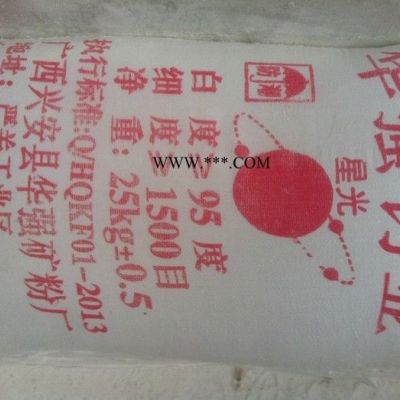 华强
星光
防潮
白度≥95度
细度≥1500目
净重:25kg±0.5
执行标准:Q/HQKF01-2013
广西兴安县华强矿粉厂
地址:严关工业区
WWW.***.COM